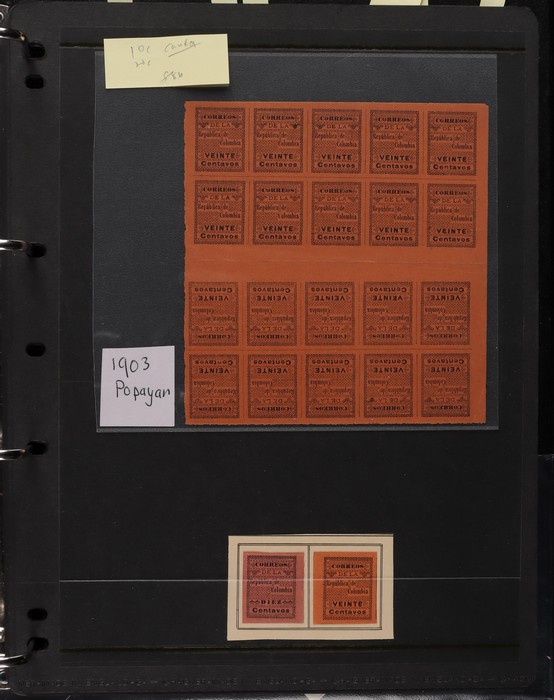 10c
1903
Popayan
CORREOS CORREOS CORREOS CORREOS CORREOS
DE LA DE LA DE LA DE LA DE LA
República de República de República de República de República de
Colombia Colombia Colombia Colombia Colombia
VEINTE VEINTE VEINTE VEINTE VEINTE
Centavos Centavos Centavos Centavos Centavos
CORREOS CORREOS CORREOS CORREOS CORREOS
DE LA DE LA DE LA DE LA DE LA
República de República de República de República de República de
Colombia Colombia Colombia Colombia Colombia
VEINTE VEINTE VEINTE VEINTE VEINTE
Centavos Centavos Centavos Centavos Centavos
Centavos Centavos Centavos Centavos Centavos
VEINTE VEINTE VEINTE VEINTE VEINTE
Colombia Colombia Colombia Colombia Colombia
República de República de República de República de República de
DE LA DE LA DE LA DE LA DE LA
CORREOS CORREOS CORREOS CORREOS CORREOS
Centavos Centavos Centavos Centavos Centavos
VEINTE VEINTE VEINTE VEINTE VEINTE
Colombia Colombia Colombia Colombia Colombia
República de República de República de República de República de
DE LA DE LA DE LA DE LA DE LA
CORREOS CORREOS CORREOS CORREOS CORREOS
CORREOS CORREOS
DE LA DE LA
República de República de
Colombia Colombia
DIEZ VEINTE
Centavos Centavos